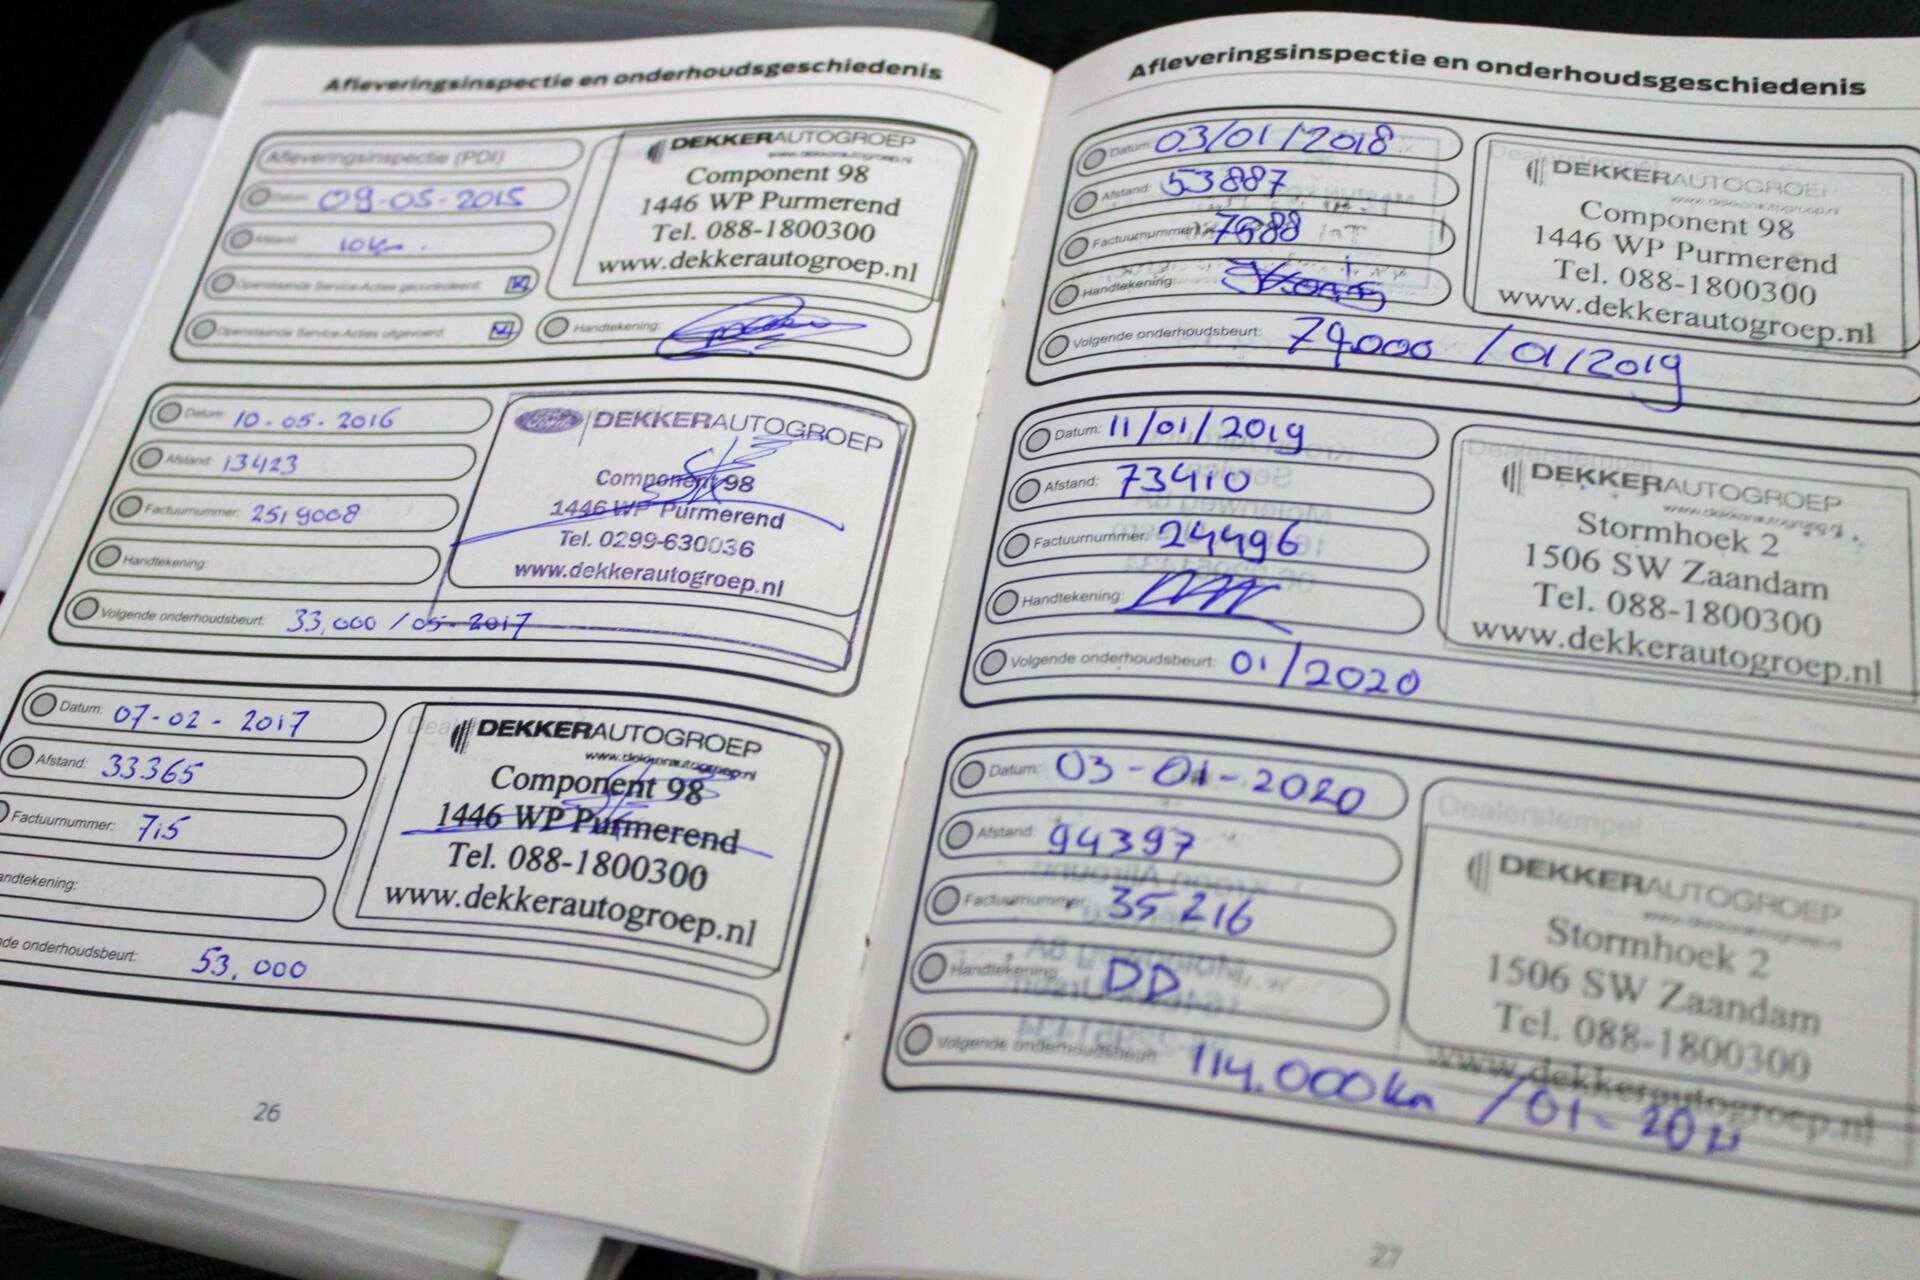 Afleveringsinspectie en onderhoudsgeschiedenis
Afleveringsinspectie (PDI)
Datum: 09-05-2015
Afstand: 10km.
Openstaande Service-Acties gecontroleerd
Openstaande Service-Acties uitgevoerd
DEKKERAUTOGROEP
www.dekkerautogroep.nl
Component 98
1446 WP Purmerend
Tel. 088-1800300
www.dekkerautogroep.nl
Handtekening:
Datum: 10-05-2016
Afstand: 13423
Factuurnummer: 2519008
Handtekening:
Volgende onderhoudsbeurt: 33,000 / 05-2017
DEKKERAUTOGROEP
Component 98
1446 WP Purmerend
Tel. 0299-630036
www.dekkerautogroep.nl
Datum: 07-02-2017
Afstand: 33365
Factuurnummer: 715
andtekening:
de onderhoudsbeurt: 53,000
DEKKERAUTOGROEP
www.dekkerautogroep.nl
Component 98
1446 WP Purmerend
Tel. 088-1800300
www.dekkerautogroep.nl
26
Afleveringsinspectie en onderhoudsgeschiedenis
Datum: 03/01/2018
Afstand: 53887
Factuurnummer:
Handtekening:
Volgende onderhoudsbeurt: /01/2019
Dealerstempel
DEKKERAUTOGROEP
www.dekkerautogroep.nl
Component 98
1446 WP Purmerend
Tel. 088-1800300
www.dekkerautogroep.nl
Datum: 11/01/2019
Afstand: 73410
Factuurnummer: 24496
Handtekening:
Volgende onderhoudsbeurt: 01/2020
Dealerstempel
DEKKERAUTOGROEP
www.dekkerautogroep.nl
Stormhoek 2
1506 SW Zaandam
Tel. 088-1800300
www.dekkerautogroep.nl
Datum: 03-01-2020
Afstand: 94397
Factuurnummer: 35216
Handtekening: DD
Volgende onderhoudsbeurt: 114.000km /01-2021
Dealerstempel
DEKKERAUTOGROEP
www.dekkerautogroep.nl
Stormhoek 2
1506 SW Zaandam
Tel. 088-1800300
www.dekkerautogroep.nl
27